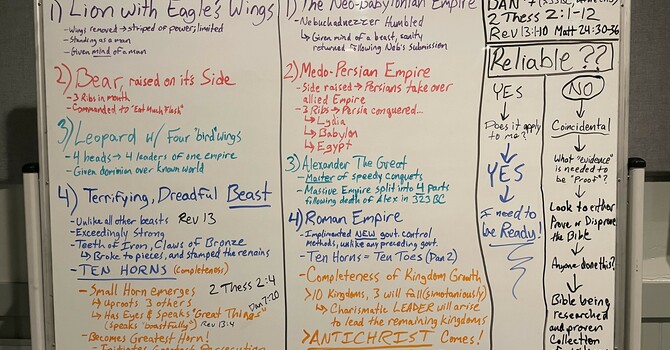 1) Lion with Eagle's Wings
- Wings removed → striped of power, limited
- Standing as a man
- Given mind of a man
2) Bear, raised on it's Side
- 3 Ribs in mouth
- Commanded to "Eat Much Flesh"
3) Leopard w/ Four "bird" wings
- 4 heads → 4 leaders of one empire
- Given dominion over known world
4) Terrifying, Dreadful Beast
- Unlike all other beasts Rev 13
- Exceedingly strong
- Teeth of Iron, Claws of Bronze
↳ Broke to pieces, and stamped the remains
- TEN HORNS (completeness)
- Small Horn emerges 2 Thess 2:4
↳ Uproots 3 others Dan 7:20
↳ Has Eyes & Speaks "Great Things"
(speaks "boastfully") Rev 13:4
- Becomes Greatest Horn!
1) The Neo-Babylonian Empire
- Nebuchadnezzer Humbled
↳ Given mind of a beast, sanity
returned following Neb's submission
2) Medo-Persian Empire
- Side raised → Persians take over
allied Empire
- 3 Ribs → Persia conquered...
↳ Lydia
↳ Babylon
↳ Egypt
3) Alexander The Great
- Master of speedy conquests
- Massive Empire split into 4 parts
following death of Alex in 323 BC
4) Roman Empire
- Implimented NEW govt. control
methods, unlike any preceding govt.
- Ten Horns = Ten Toes (Dan 2)
- Completeness of Kingdom Growth
>10 Kingdoms, 3 will fall (simotaniously)
↳ Charismatic LEADER will arise
to lead the remaining kingdoms
>ANTICHRIST Comes!
DAN 7
2 Thess 2:1-12
Rev 13:1-10 Matt 24:30-36
Reliable ??
YES
Does it apply
to me?
YES
I need to
be Ready!
NO
Coincidental
What "evidence"
is needed to
be "Proof"?
Look to either
Prove or Disprove
the Bible
Anyone done this?
Bible being
researched
and proven
Collection